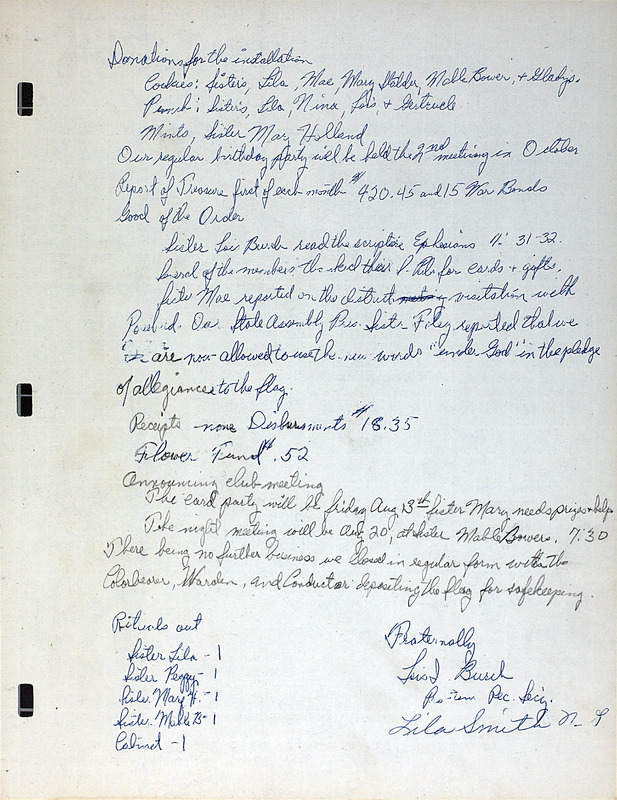 Donations for the installation
Cookies: Sisters, Lila, Mae, Mary Stalder, Mable Bower, + Gladys.
Punch: Sisters, Lila, Nina, Lois, + Gertrude
Mints, Sister Mary Holland
Our regular birthday party will be held the 2nd meeting in October
Report of Treasure first of each month # 420.45 and 15 War Bonds
Good of the Order
Sister Lois Burch read the scripture Ephesians 4: 31-32.
Several of the members thanked their for cards + gifts,
Sister Mae reported on the district meeting visitation with
Rosebud. Our State Assembly Pres. Sister reported that we
are now allowed to use the new words "under God" in the pledge
of allegiance to the flag.
Receipts none Disbursments # 18.35
Flower Fund # .52
Announcing club meeting
The card party will be friday Aug 13th Sister Mary needs prizes + help
The night meeting will be Aug 20, at Sister Mable Bowers, 7:30
There being no further business we closed in regular form with the
Colorbearer, Warden, and Conductor depositing the flag for safekeeping.
Rituals out
Sister Lila - 1
Sister Peggy - 1
Sister Mary H. - 1
Sister Mable B - 1
Cabinet - 1
Fraternally
Lois J. Burch
Pro-tem Rec. Sec'y.
Lila Smith N. G